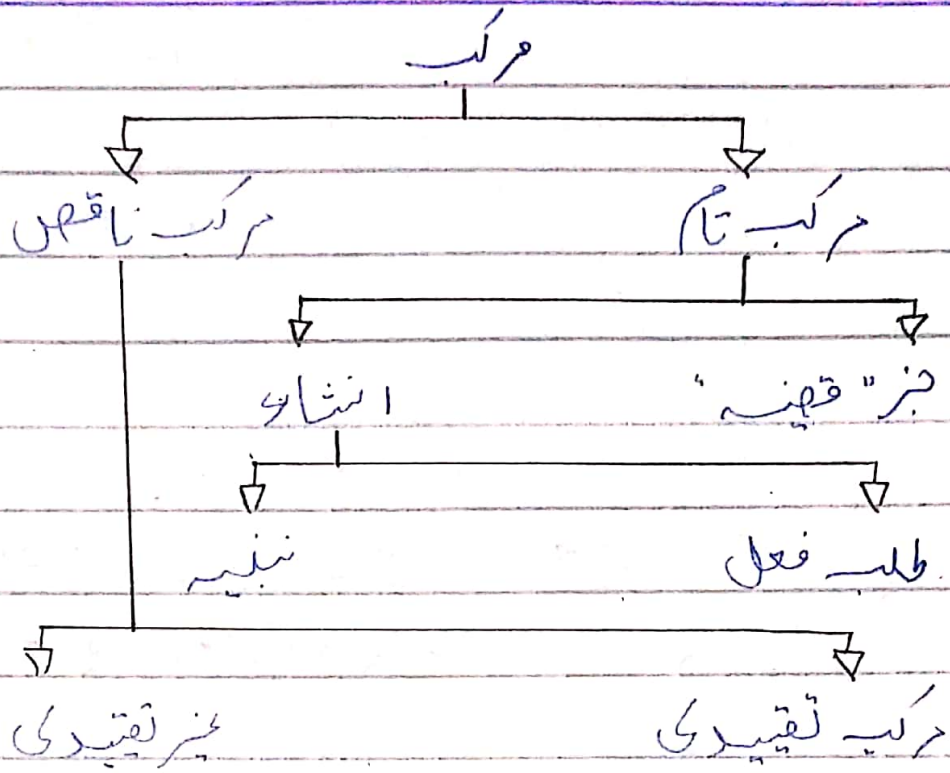 مرکب
مرکب تام مرکب ناقص
خبر "قضیہ" انشاء
طلب فعل تنبیہ
مرکب تقیدی غیر تقیدی